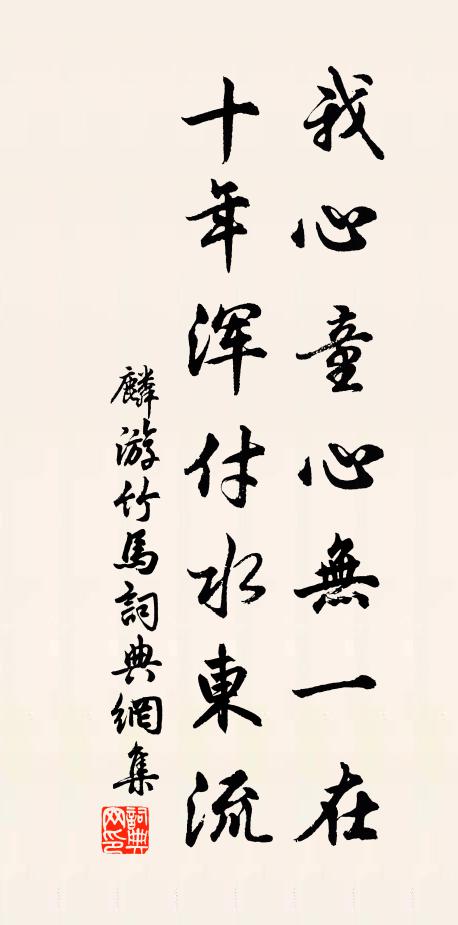 我心童心無一在
十年浑付水東流
麟游竹馬詞典網集
詞典网印